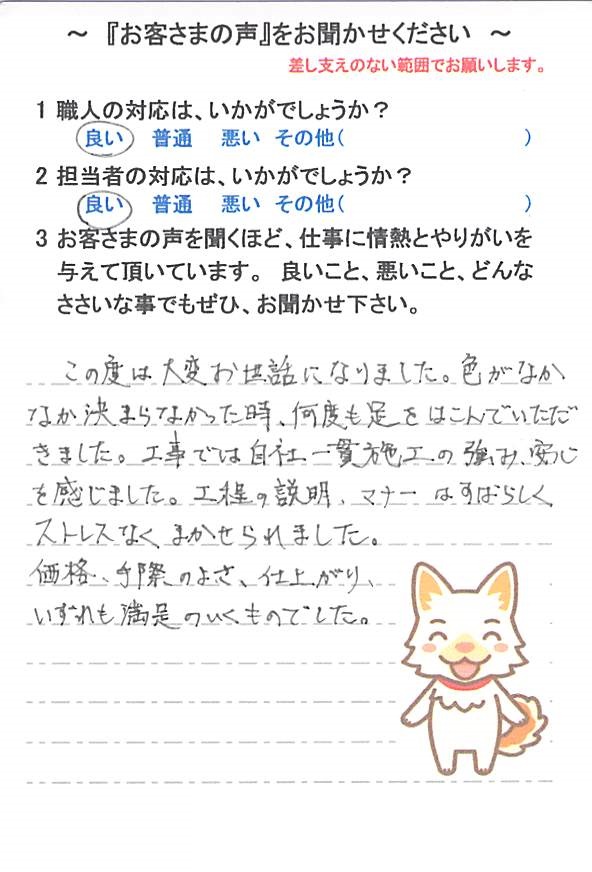 ～ 『お客さまの声』をお聞かせください ～
差し支えのない範囲でお願いします。
1 職人の対応は、いかがでしょうか？
良い 普通 悪い その他( )
2 担当者の対応は、いかがでしょうか？
良い 普通 悪い その他( )
3 お客さまの声を聞くほど、仕事に情熱とやりがいを
与えて頂いています。 良いこと、悪いこと、どんな
ささいな事でもぜひ、お聞かせ下さい。
この度は大変お世話になりました。色がなか
なか決まらなかった時、何度も足をはこんでいただ
きました。工事では自社一貫施工の強み、安心
を感じました。工程の説明、マナーはすばらしく
ストレスなくまかせられました。
価格、手際のよさ、仕上がり、
いずれも満足のいくものでした。